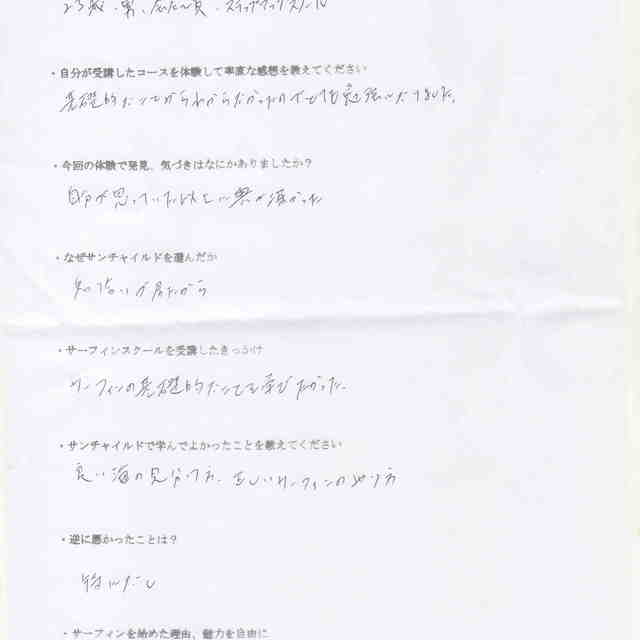 23歳・男、会社員・ステップアップスクール
・自分が受講したコースを体験して率直な感想を教えてください
基礎的なことがわからなかったのでとても勉強になりました。
・今回の体験で発見、気づきはなにかありましたか?
自分が思っていた以上に奥が深かった
・なぜサンチャイルドを選んだか
知り合いが居たから
・サーフィンスクールを受講したきっかけ
サーフィンの基礎的なことを学びたかった。
・サンチャイルドで学んでよかったことを教えてください
良い海の見分け方、正しいサーフィンのやり方
・逆に悪かったことは?
特になし
・サーフィンを始めた理由、魅力を自由に